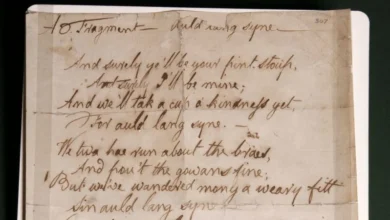 10. Fragment — Auld lang syne —
And surely ye'll be your pint stoup,
And surely I'll be mine;
And we'll tak a cup o kindness yet,
For auld lang syne. —
We twa hae run about the braes,
And pou't the gowans fine;
But we've wandered mony a weary fitt
Sin auld lang syne